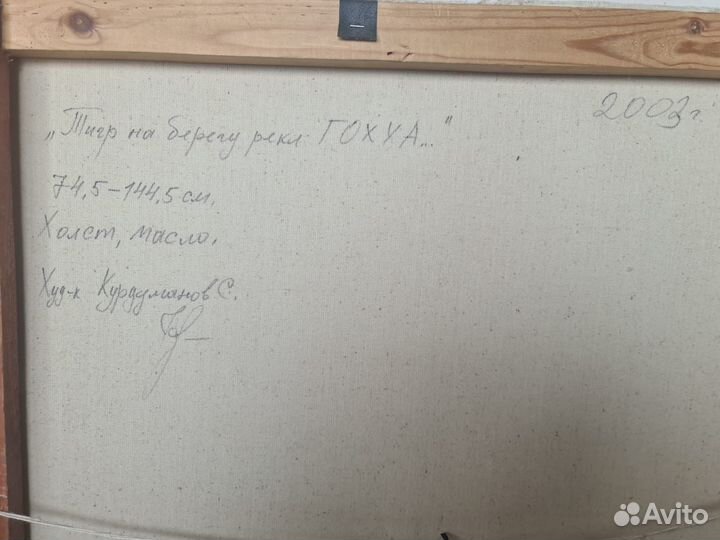 2003 г.
„Тигр на берегу реки ГОХУА..."
74,5-144,5 см.
Холст, масло.
Худ-к Курдуманов С.
Avito